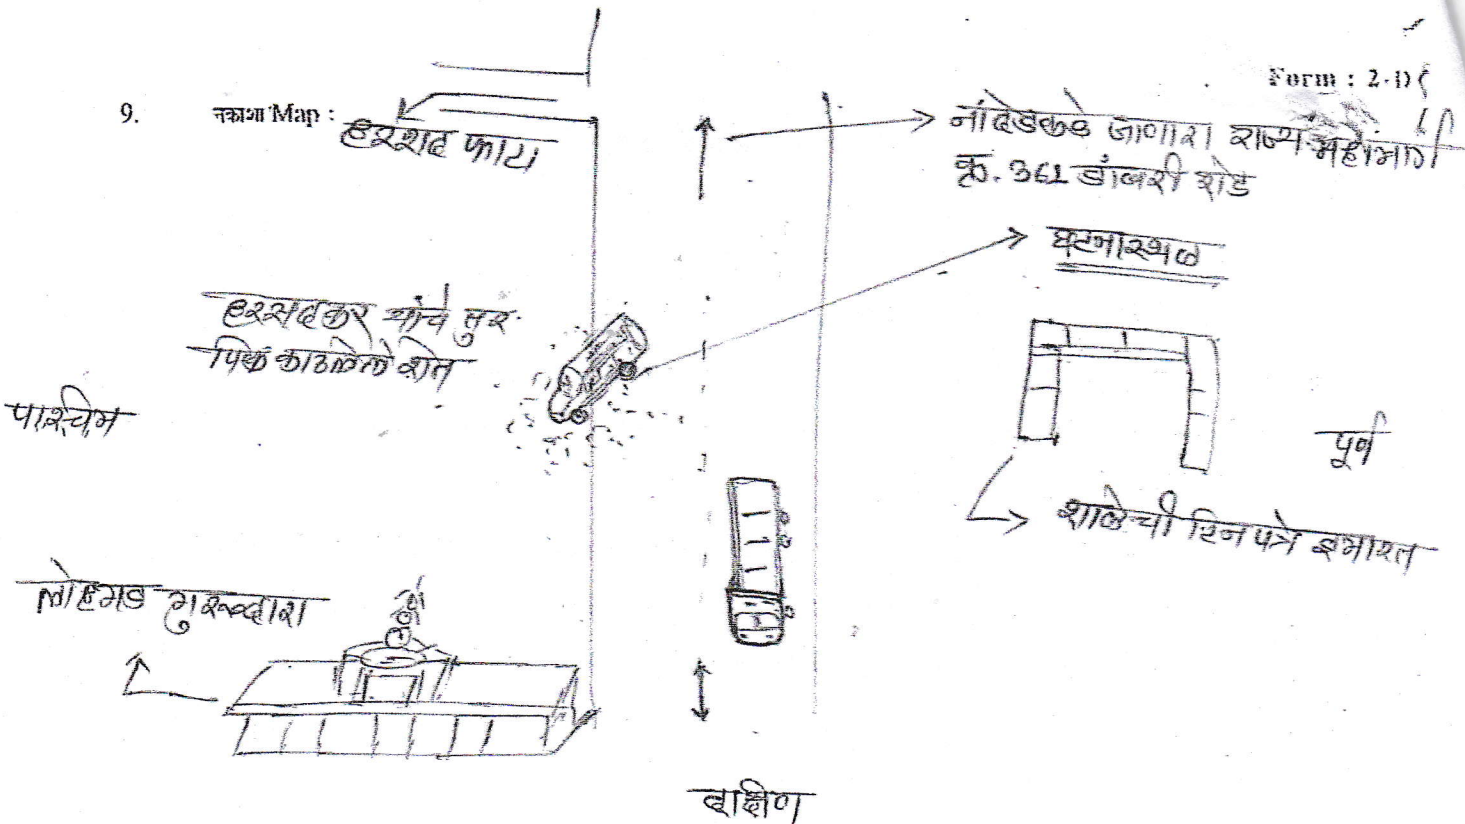 Form : 2-D
9. नकाशा/Map :
हरशद फाटा
नांदेडकडे जाणारा राज्य महामार्ग
क्र. 361 डांबरी रोड
घटनास्थळ
हरसदकर यांचे तुर
पिक काढलेले शेत
पश्चिम
पूर्व
शाळेची टिन पत्रे इमारत
लोहगड गुरूव्दारा
दक्षिण